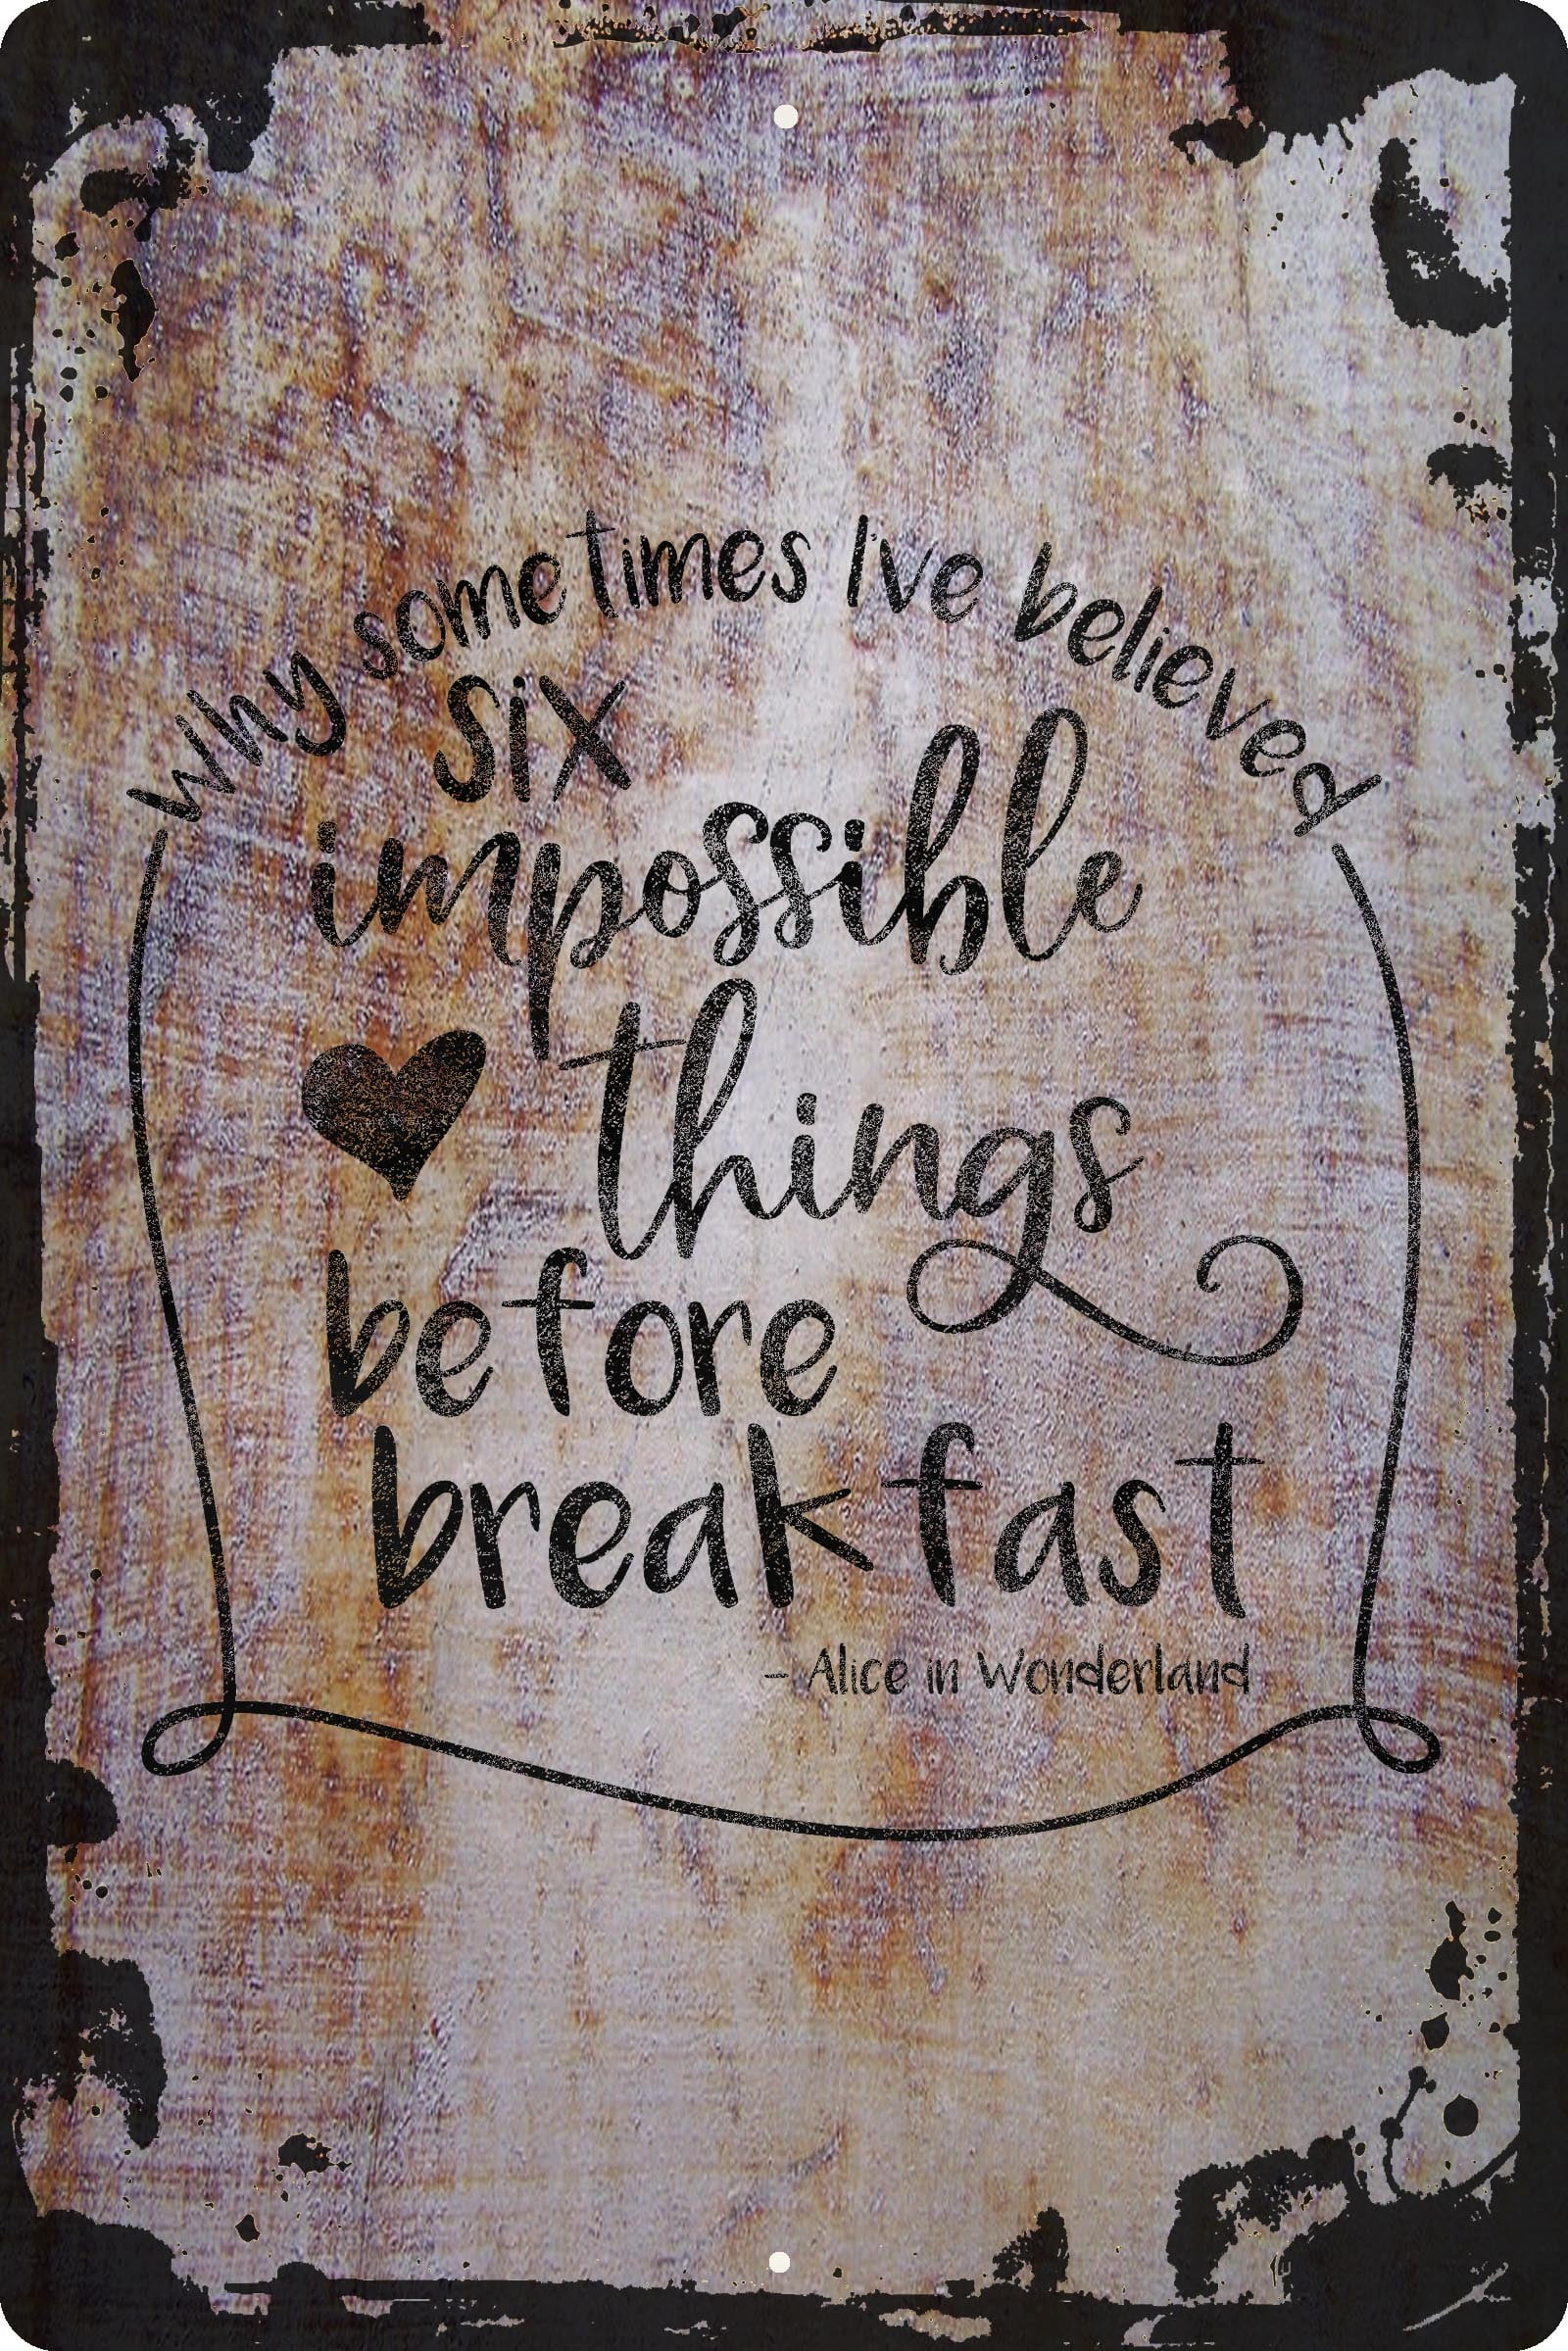 Why sometimes I've believed
six
impossible
things
before
breakfast
- Alice in Wonderland